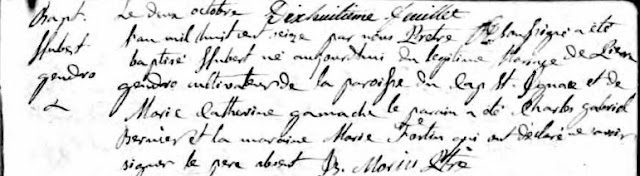 Bapt. Le deux octobre Dixhuitième feuillet
Hubert l'an mil huit cent seize par nous Prêtre soussigné a été
gendro baptisé Hubert né aujourdhui du légitime mariage de
gendro cultivateur de la paroisse du Cap St. Ignace et de
Marie Catherine gamache le parain a été Charles gabriel
Bernier et la maraine Marie Fortin qui ont déclaré ne savoir
signer le pere absent Jh. Morin Ptre